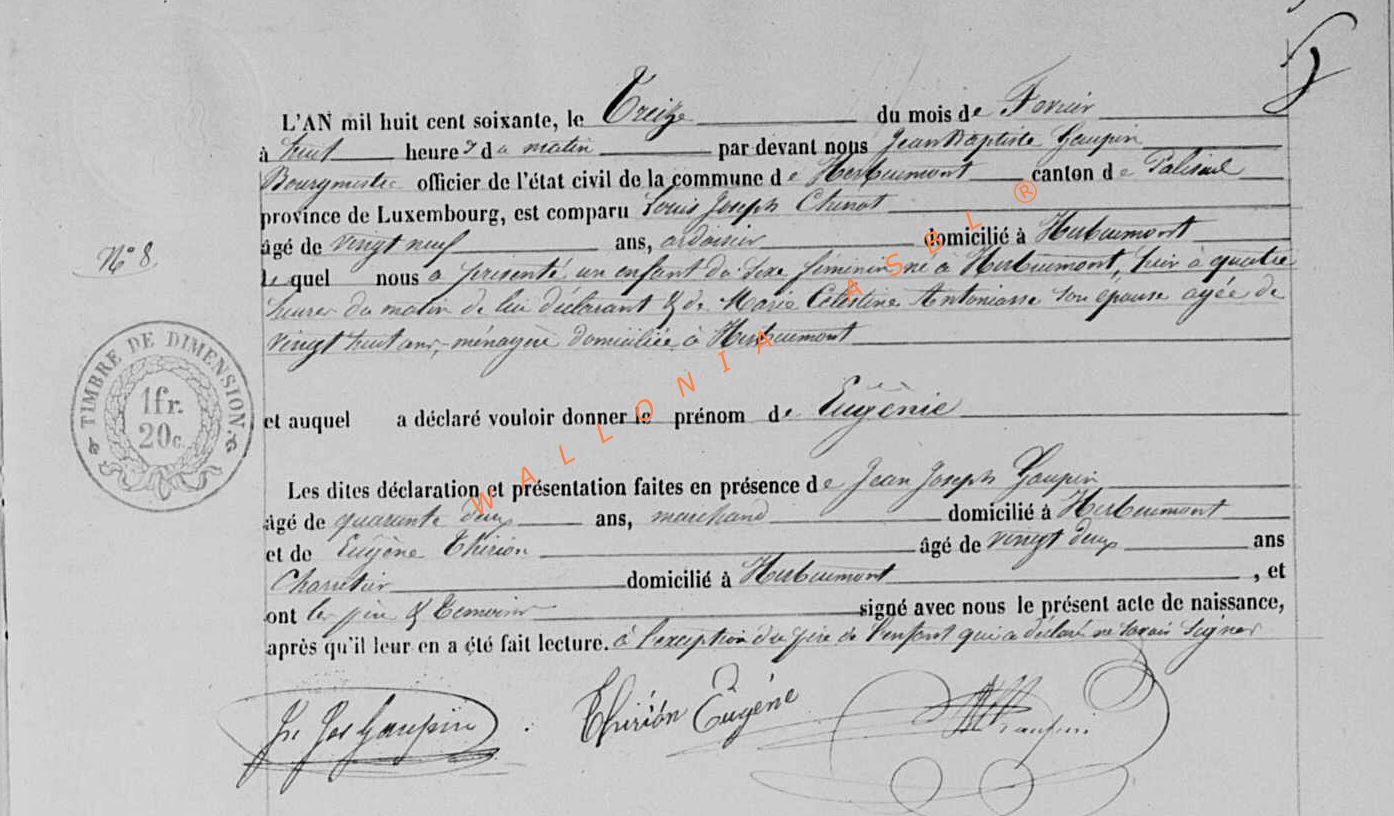 L'AN mil huit cent soixante, le Treize du mois de Fevrier
à huit heures du matin par devant nous Jean Baptiste Gaupin
Bourgmestre officier de l'état civil de la commune de Herbeumont canton de Paliseul
province de Luxembourg, est comparu Louis Joseph Chenot
âgé de vingt neuf ans, ardoisier domicilié à Herbeumont
N° 8
le quel nous a présenté un enfant du sexe féminin né à Herbeumont, hier à quatre
heures du matin de lui déclarant & de Marie Célestine Antoniasse son épouse agée de
vingt huit ans, ménagère domiciliée à Herbeumont
TIMBRE DE DIMENSION.
1fr.
20c.
et auquel a déclaré vouloir donner le prénom de Eugénie
Les dites déclaration et présentation faites en présence de Jean Joseph Gaupin
âgé de quarante deux ans, marchand domicilié à Herbeumont
et de Eugène Thirion âgé de vingt deux ans
Charretier domicilié à Herbeumont , et
ont les père & temoins signé avec nous le présent acte de naissance,
après qu'il leur en a été fait lecture. à l'exception du père de l'enfant qui a déclaré ne savoir signer
Jn Jos Gaupin Thirion Eugène Gaupin
WALLONIA ASBL ®